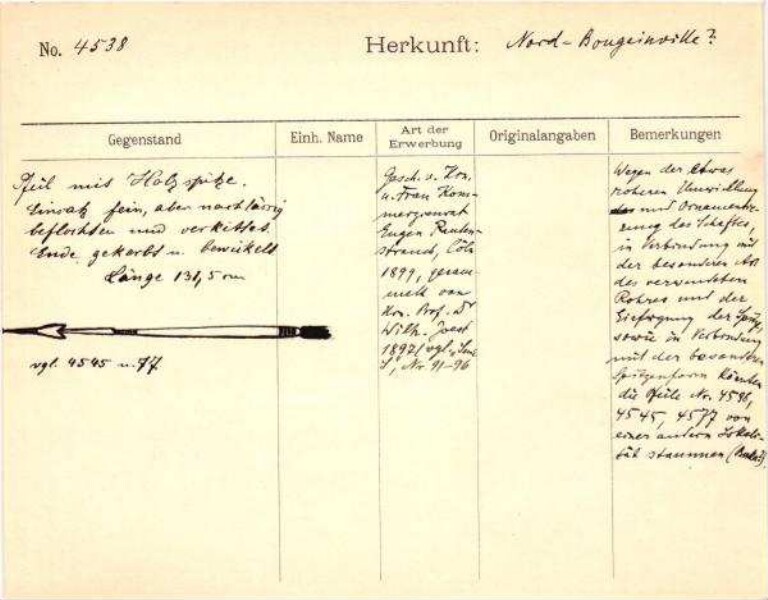 No. 4538
Herkunft: Nord-Bougainville?
Gegenstand
Einh. Name
Art der Erwerbung
Originalangaben
Bemerkungen
Pfeil mit Holzspitze.
Einsatz fein, aber nachlässig
beflochten und verkittet.
Ende gekerbt u. bewickelt
Länge 131,5 cm
vgl. 4545 u. 77
Gesch. v. Hrn.
u. Frau Kom-
merzienrat
Eugen Rauten-
strauch, Cöln
1899, gesam-
melt von
Hrn. Prof. Dr
Wilh. Joest
1897 (vgl.
Nr. 91-96
Wegen der etwas
roheren Umwicklung
und Ornamentie-
rung des Schaftes,
in Verbindung mit
der besonderen Art
des verwendeten
Rohres und der
Einfügung der Spitze
sowie in Verbindung
mit der besonderen
Spitzenform könnten
die Pfeile Nr. 4538,
4545, 4577 von
einer andern Lokali-
tät stammen